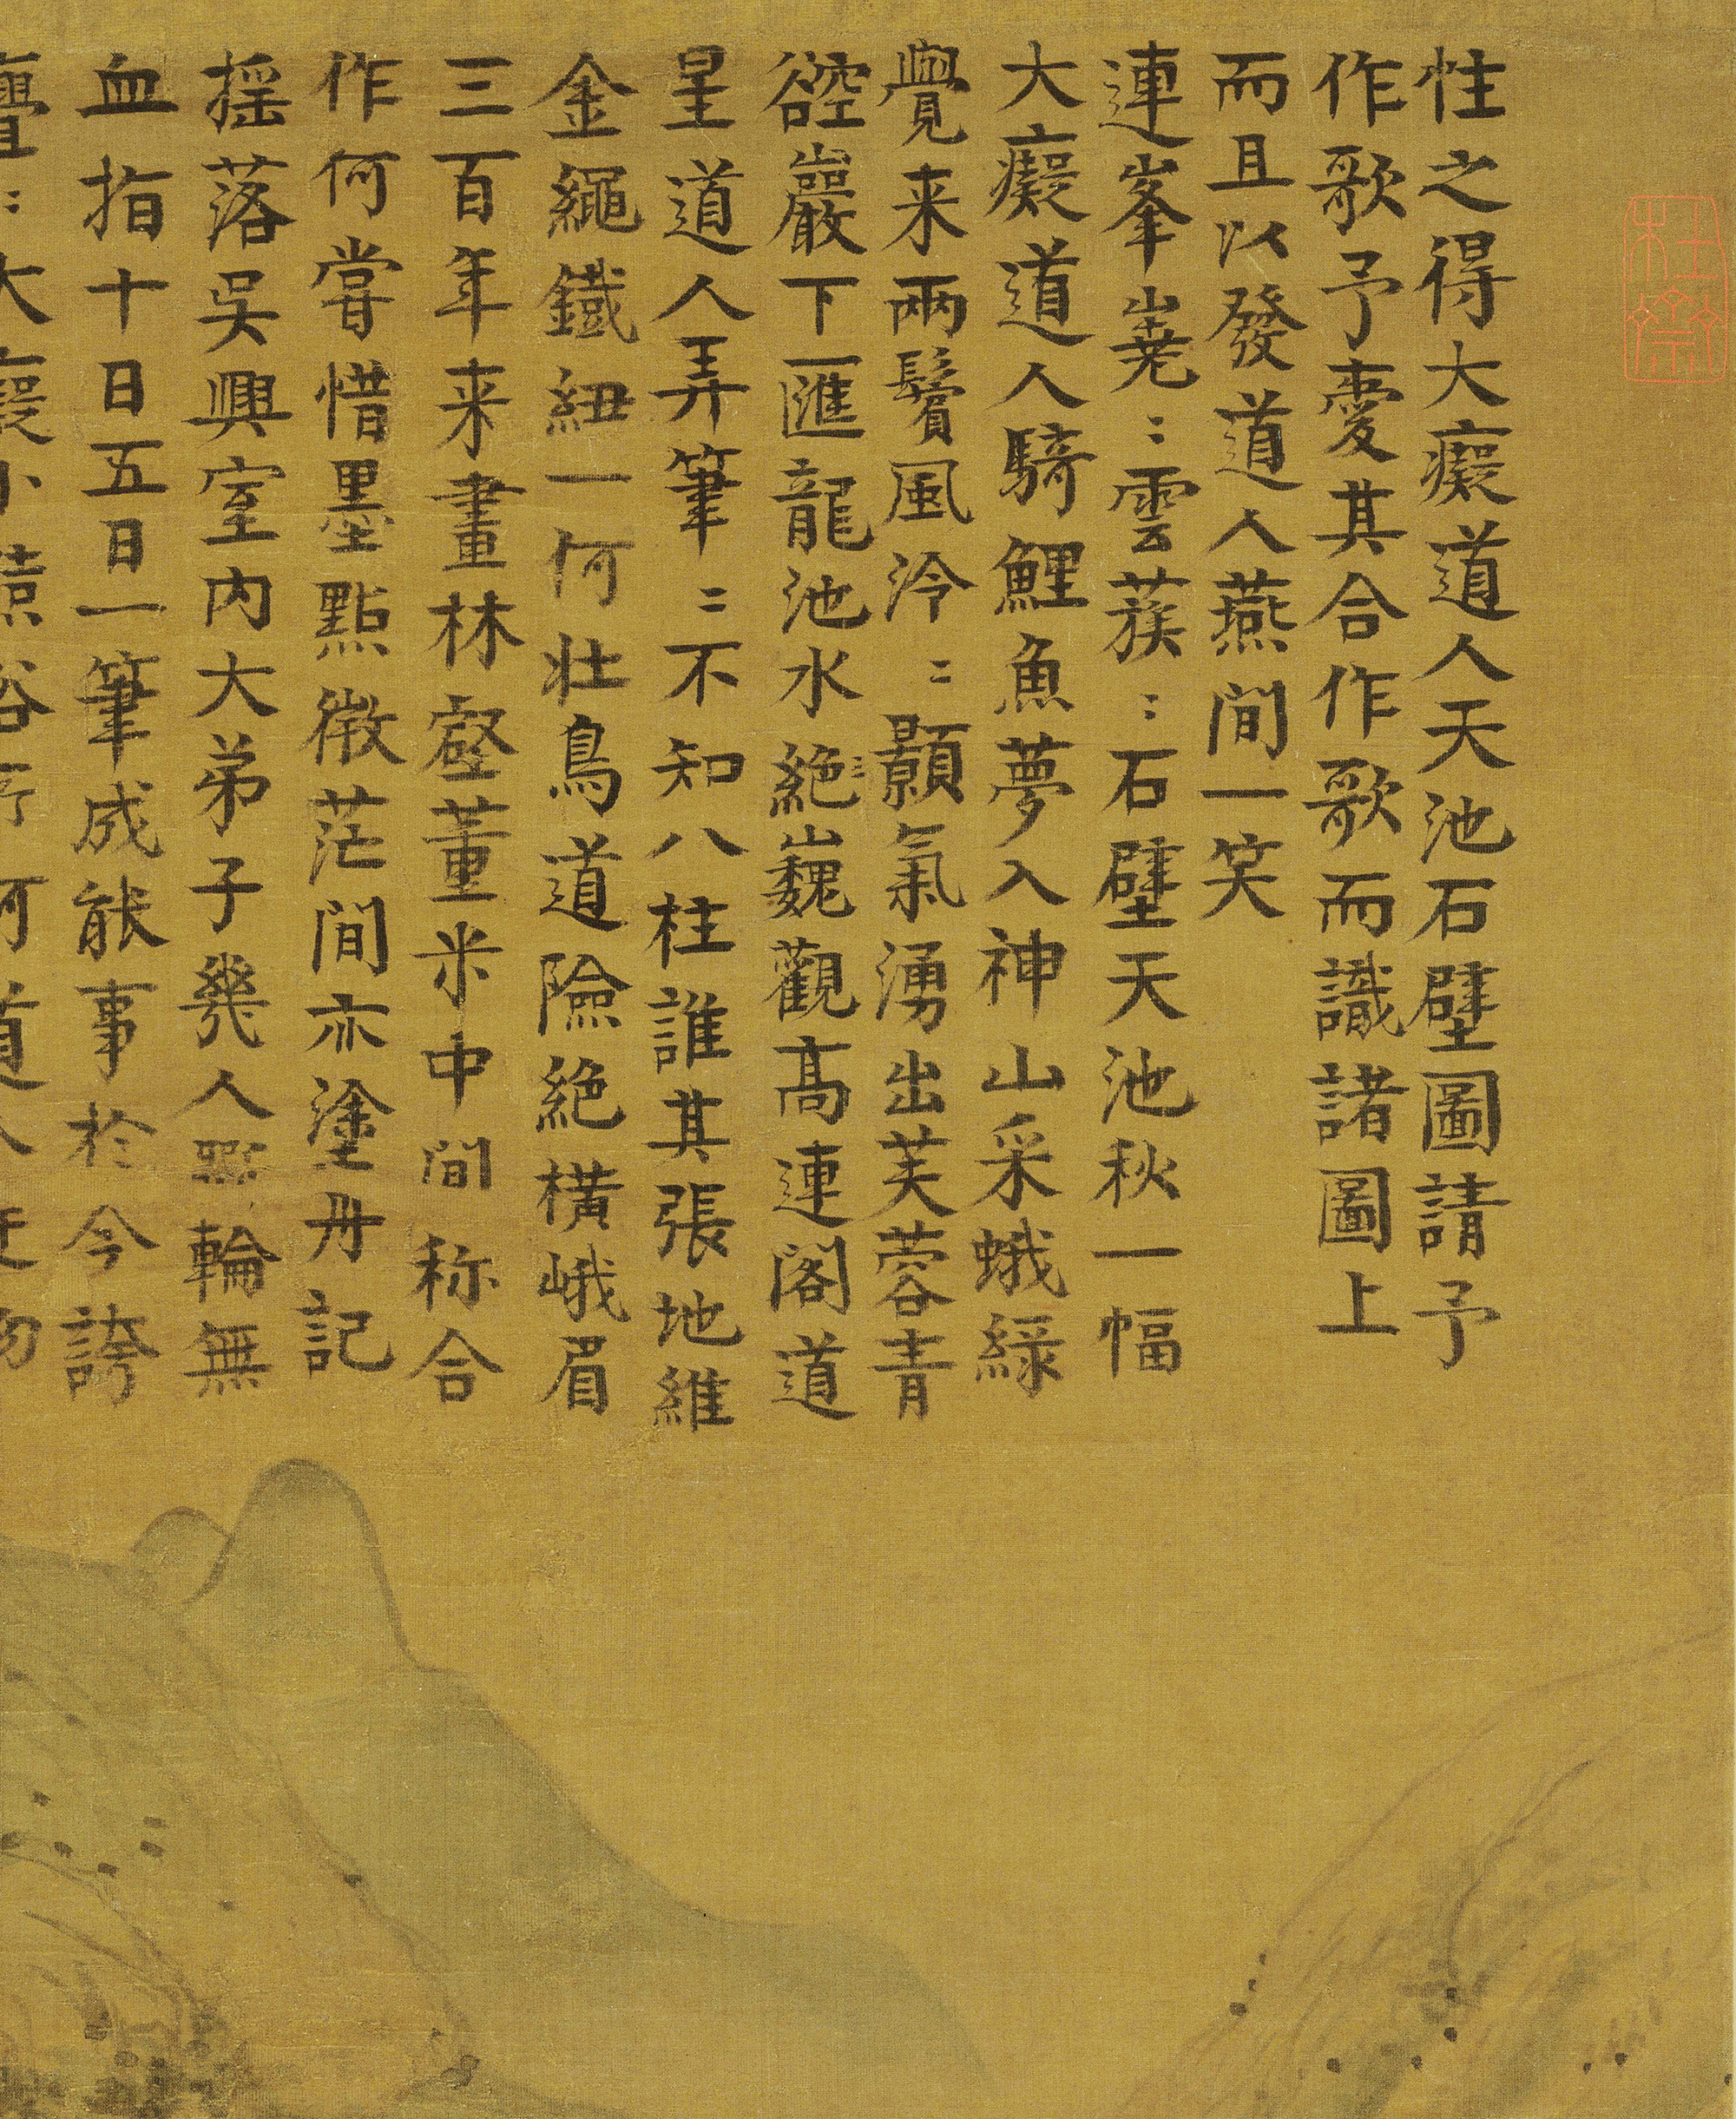 性之得大癡道人天池石壁圖請予
作歌予愛其合作歌而識諸圖上
而且以發道人燕間一笑
連峯嶤〻雲蔟〻石壁天池秋一幅
大癡道人騎鯉魚夢入神山采蛾綠
覺来兩鬢風泠〻顥氣湧出芙蓉青
谾巖下匯龍池水絕巍觀高連閣道
星道人弄筆〻不知八柱誰其張地維
金繩鐵紐一何壯鳥道險絕橫峨眉
三百年来畫林壑董米中間称合
作何嘗惜墨點微茫間亦塗丹記
搖落吳興室內大弟子幾人輪無
血指十日五日一筆成能事於今誇
大癡小
杜瓊